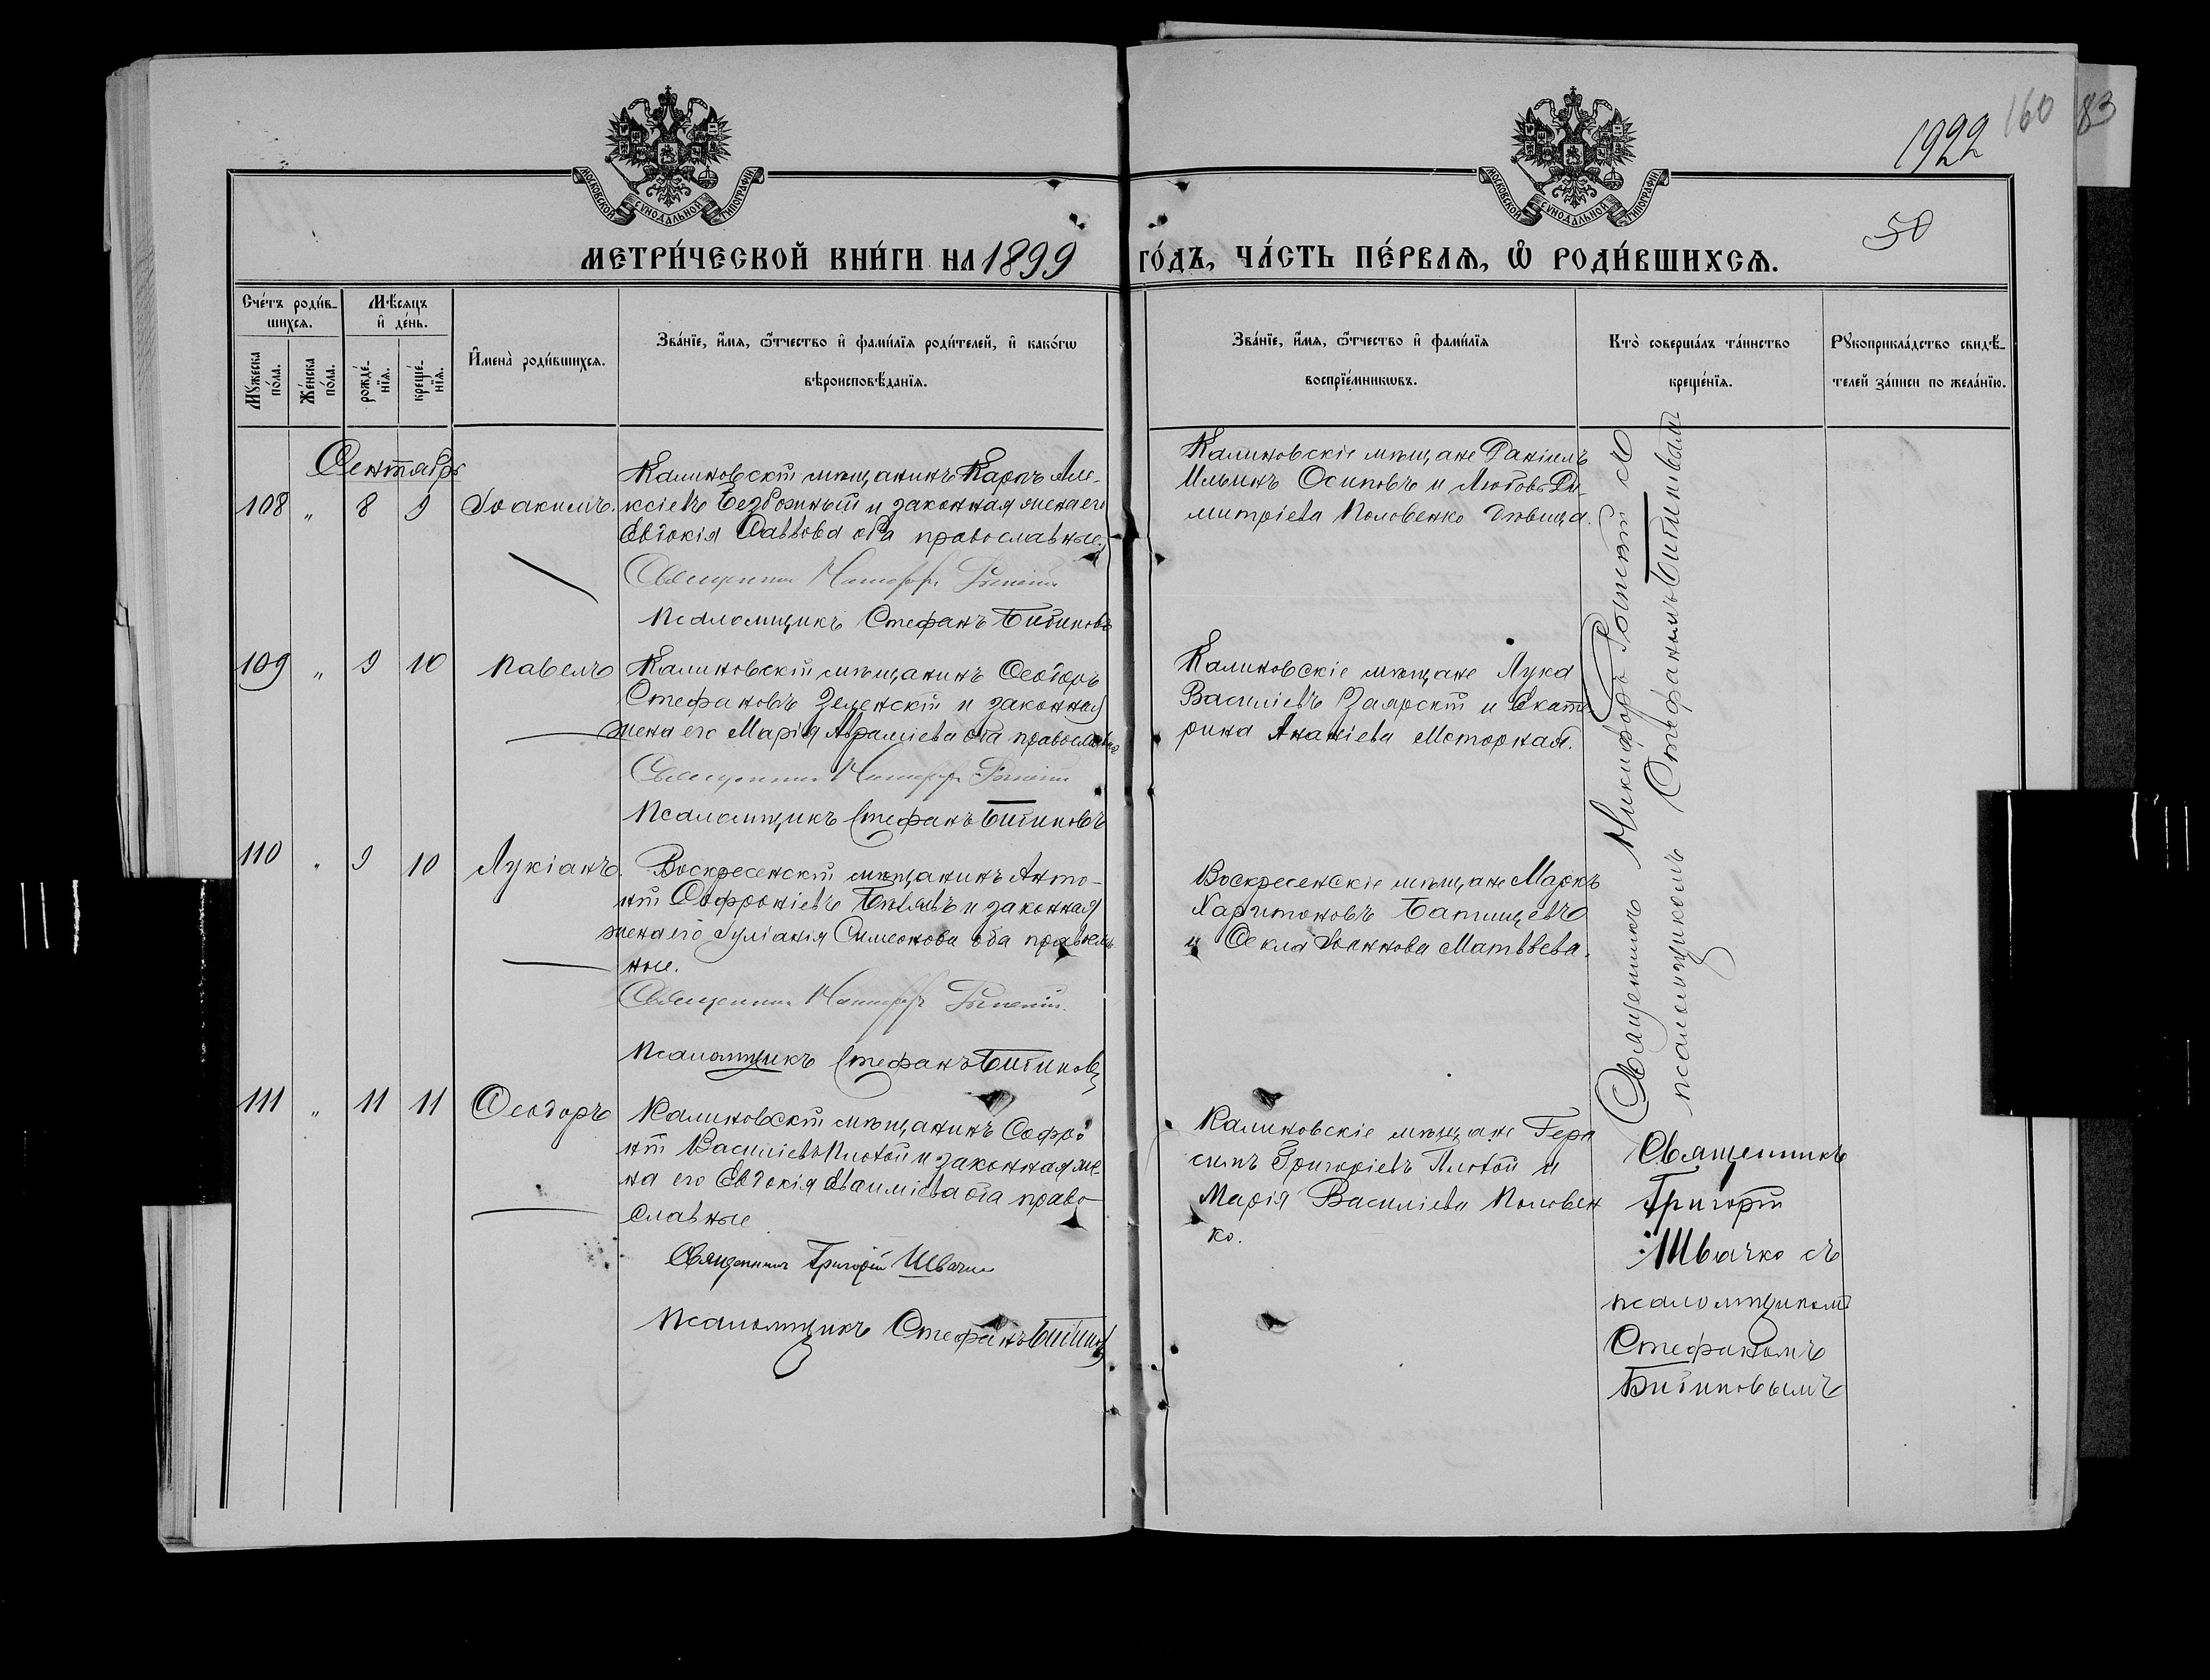 1922 160 83
50
МОСКОВСКОЙ СУНОДАЛЬНОЙ ТИПОГРАФІИ
МОСКОВСКОЙ СУНОДАЛЬНОЙ ТИПОГРАФІИ
МЕТРИ́ЧЕСКОЙ КНИ́ГИ НА 1899 ГО́ДЪ, ЧА́СТЬ ПЕ́РВАѦ, Ѿ РОДИ́ВШИХСѦ.
Сче́тъ роди́в-
шихсѧ.
Мꙋжеска по́ла.
Же́нска по́ла.
Мѣ́сѧцъ
и҆ де́нь.
рожде́-
нїѧ.
креще́-
нїѧ.
И҆мена̀ роди́вшихсѧ.
Зва́нїе, и҆́мѧ, ѻ҆́тчество и҆ фами́лїѧ роди́телей, и҆ како́гѡ
вѣроисповѣ́данїѧ.
Зва́нїе, и҆́мѧ, ѻ҆́тчество и҆ фами́лїѧ
воспрїе́мникѡвъ.
Кто̀ соверша́лъ та́инство
креще́нїѧ.
Рꙋкоприкла́дство свидѣ́-
телей за́писи по жела́нїю.
Сентябрь
108 " 8 9 Іоакимъ.
Калиновскій мѣщанинъ Карпъ Але-
ксіевъ Безбожный и законная жена его
Евдокія Саввова оба православные.
Священникъ Никифоръ
Псаломщикъ Стефанъ Битиновъ
Калиновскіе мѣщане Даніилъ
Ильинъ Осиповъ и Любовь Ди-
митріева Половенко дѣвица.
109 " 9 10 Павелъ
Калиновскій мѣщанинъ Ѳеодоръ
Стефановъ Зеленскій и законная
жена его Марія Авраміева оба православные
Священникъ Никифоръ
Псаломщикъ Стефанъ Битиновъ
Калиновскіе мѣщане Лука
Василіевъ Заярскій и Екате
рина Ананіева Моторная.
110 " 9 10 Лукіанъ.
Воскресенскій мѣщанинъ Анто-
ній Софроніевъ и законная
жена его Іуліанія Симеонова оба православ
ные.
Священникъ Никифоръ
Псаломщикъ Стефанъ Битиновъ
Воскресенскіе мѣщане Маркъ
Харитоновъ Батищевъ
и Ѳекла Іоаннова Матвѣева.
Священникъ Никифоръ съ
псаломщикомъ Стефаномъ Битиновымъ
111 " 11 11 Ѳеодоръ
Калиновскій мѣщанинъ Софро
ній Василіевъ Плохой и законная же-
на его Евдокія оба право-
славные
Священникъ Григорій Швачко
Псаломщикъ Стефанъ Битиновъ
Калиновскіе мѣщане Гера
симъ Григоріевъ Плохой и
Марія Василіева Половен
ко.
Священникъ
Григорій
Швачко съ
псаломщикомъ
Стефаномъ
Битиновымъ